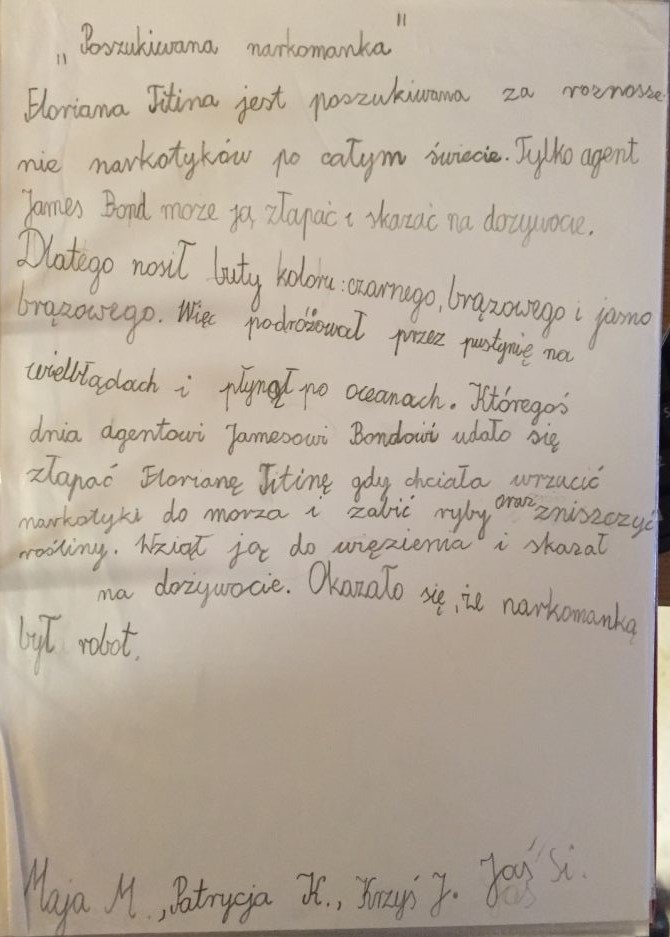 „Poszukiwana narkomanka"
Floriana Titina jest poszukiwana za roznosze
nie narkotyków po całym świecie. Tylko agent
James Bond może ją złapać i skazać na dozywocie.
Dlatego nosił buty koloru: czarnego, brązowego i jasno
brązowego. Więc podróżował przez pustynię na
wielbłądach i płynął po oceanach. Któregoś
dnia agentowi Jamesowi Bondowi udało się
złapać Florianę Titinę gdy chciała wrzucić
narkotyki do morza i zabić ryby oraz zniszczyć
rośliny. Wziął ją do więzienia i skazał
na dożywocie. Okazało się, że narkomanką
był robot.
Maja M., Patrycja K., Krzyś J. Jaś Si.